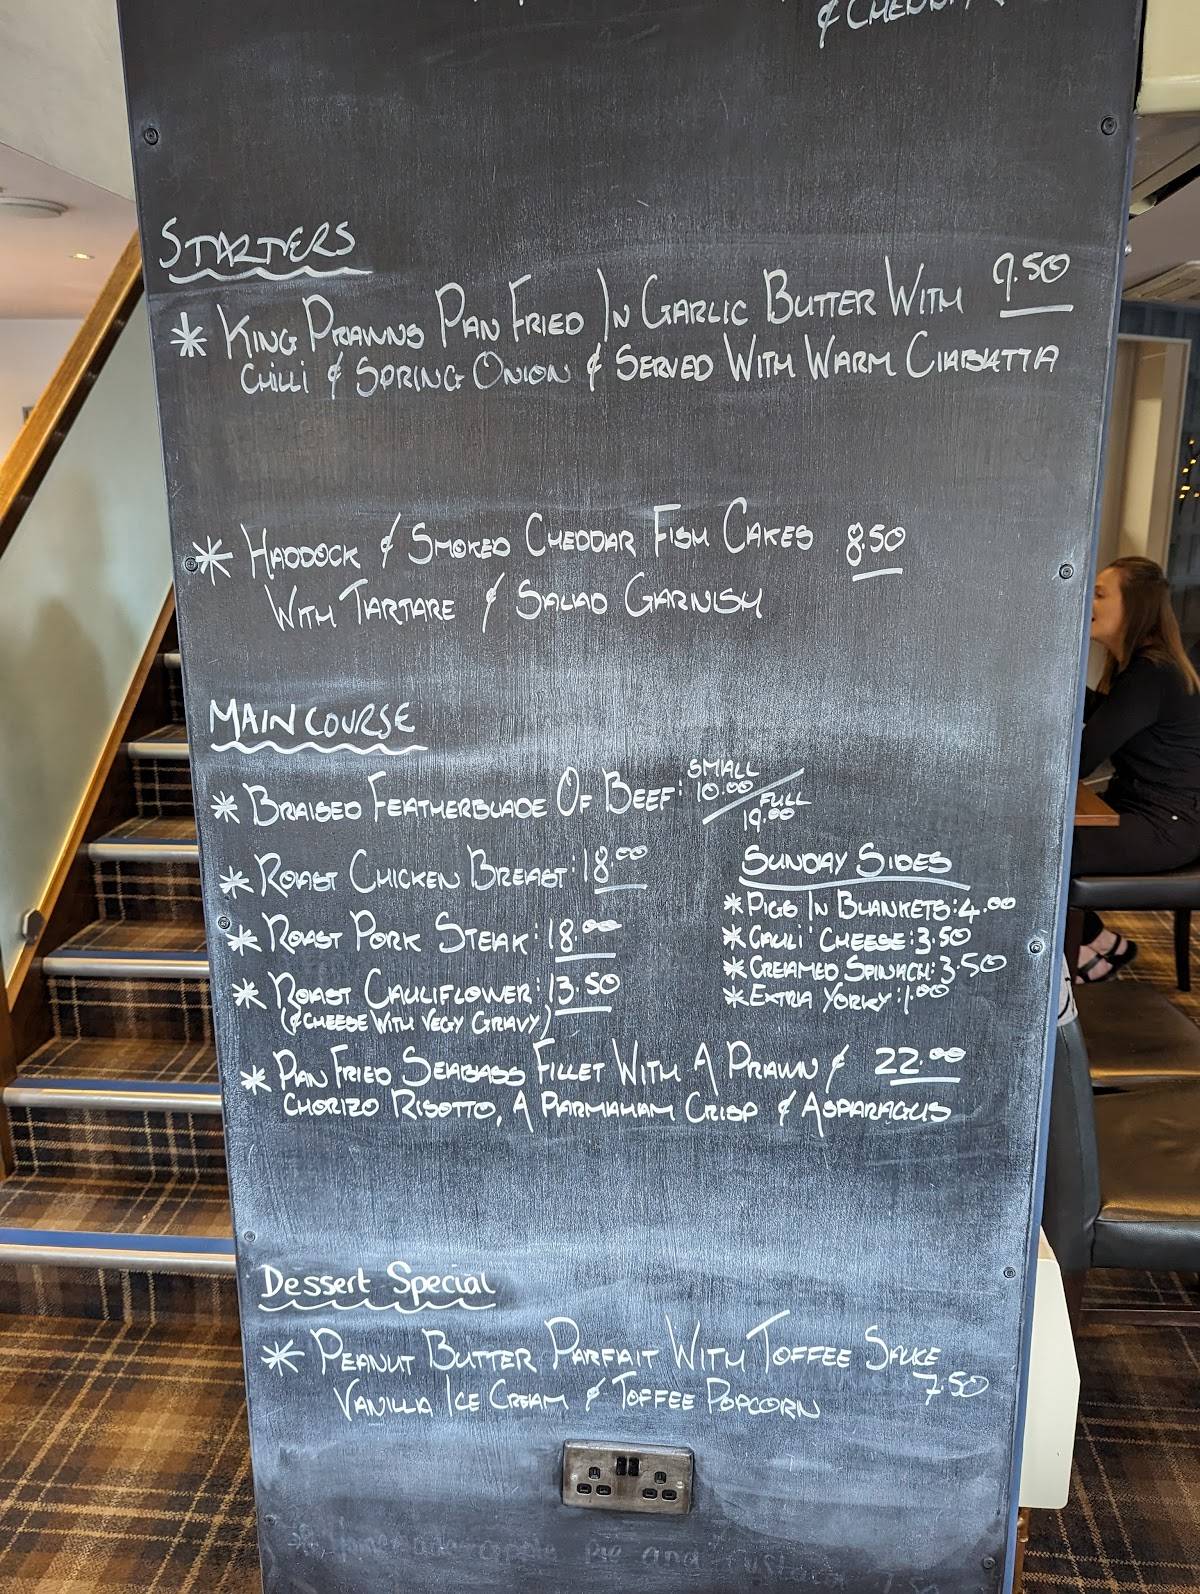 & CHEDDAR
STARTERS
* KING PRAWNS PAN FRIED IN GARLIC BUTTER WITH 9.50
CHILLI & SPRING ONION & SERVED WITH WARM CIABATTA
* HADDOCK & SMOKED CHEDDAR FISH CAKES 8.50
WITH TARTARE & SALAD GARNISH
MAIN COURSE
* BRAISED FEATHERBLADE OF BEEF: SMALL 10.00 / FULL 19.00
* ROAST CHICKEN BREAST: 18.00
* ROAST PORK STEAK: 18.00
* ROAST CAULIFLOWER: 13.50
(& CHEESE WITH VEGY GRAVY)
SUNDAY SIDES
* PIGS IN BLANKETS: 4.00
* CAULI CHEESE: 3.50
* CREAMED SPINACH: 3.50
* EXTRA YORKY: 1.00
* PAN FRIED SEABASS FILLET WITH A PRAWN & 22.00
CHORIZO RISOTTO, A PARMAHAM CRISP & ASPARAGUS
Dessert Special
* PEANUT BUTTER PARFAIT WITH TOFFEE SAUCE
VANILLA ICE CREAM & TOFFEE POPCORN 7.50
apple pie and